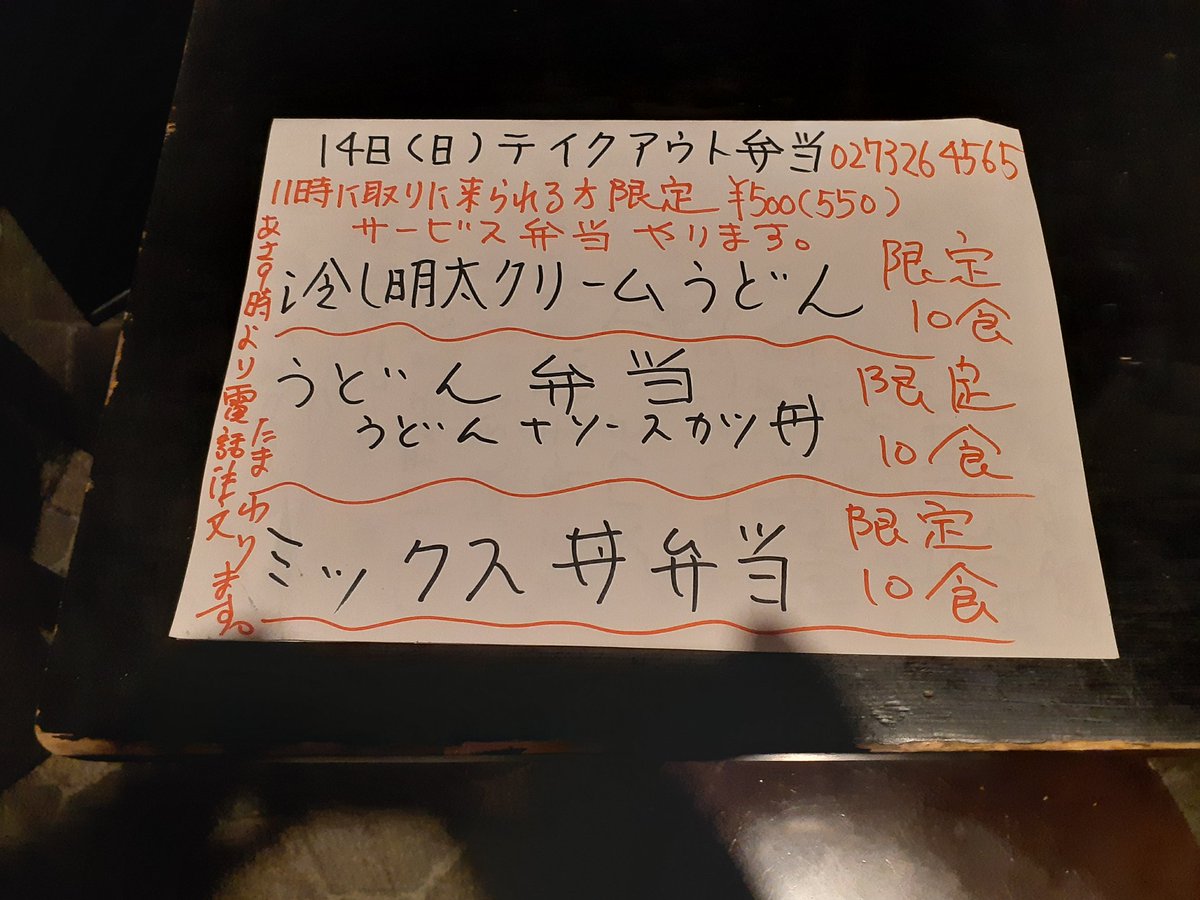 14日(日)テイクアウト弁当0273264565
11時に取りに来られる方限定 ¥500(550)
サービス弁当 やります。
冷し明太クリームうどん
限定
10食
うどん 弁当
うどん+ソースカツ丼
限定
10食
ミックス丼弁当
限定
10食
あさ9時より電話注文
たまわります。